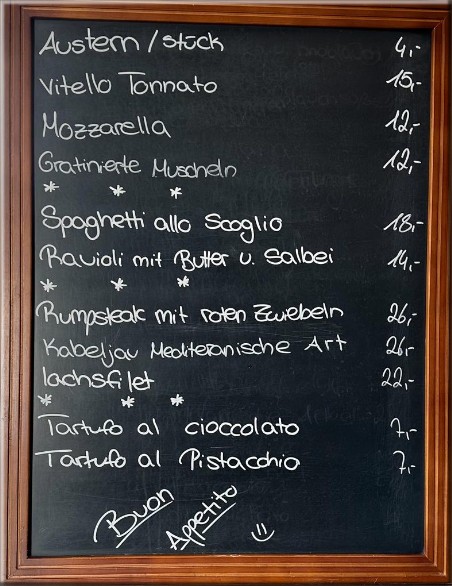 Austern/stück 4,-
Vitello Tonnato 15,-
Mozzarella 12,-
Gratinierte Muscheln 12,-
* * *
Spaghetti allo Scoglio 18,-
Ravioli mit Butter u. Salbei 14,-
* * *
Rumpsteak mit roten Zwiebeln 26,-
Kabeljau Mediteranische Art 26,-
lachsfilet 22,-
* * *
Tartufo al cioccolato 7,-
Tartufo al Pistacchio 7,-
Buon
Appetito